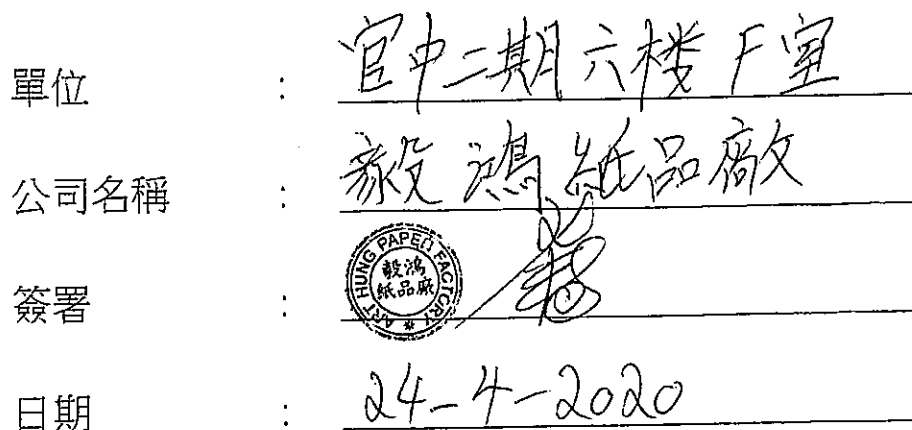 單位 : 官中二期六楼F室
公司名稱 : 毅鴻紙品廠
簽署 : ART HUNG PAPER FACTORY 毅鴻紙品廠
日期 : 24-4-2020